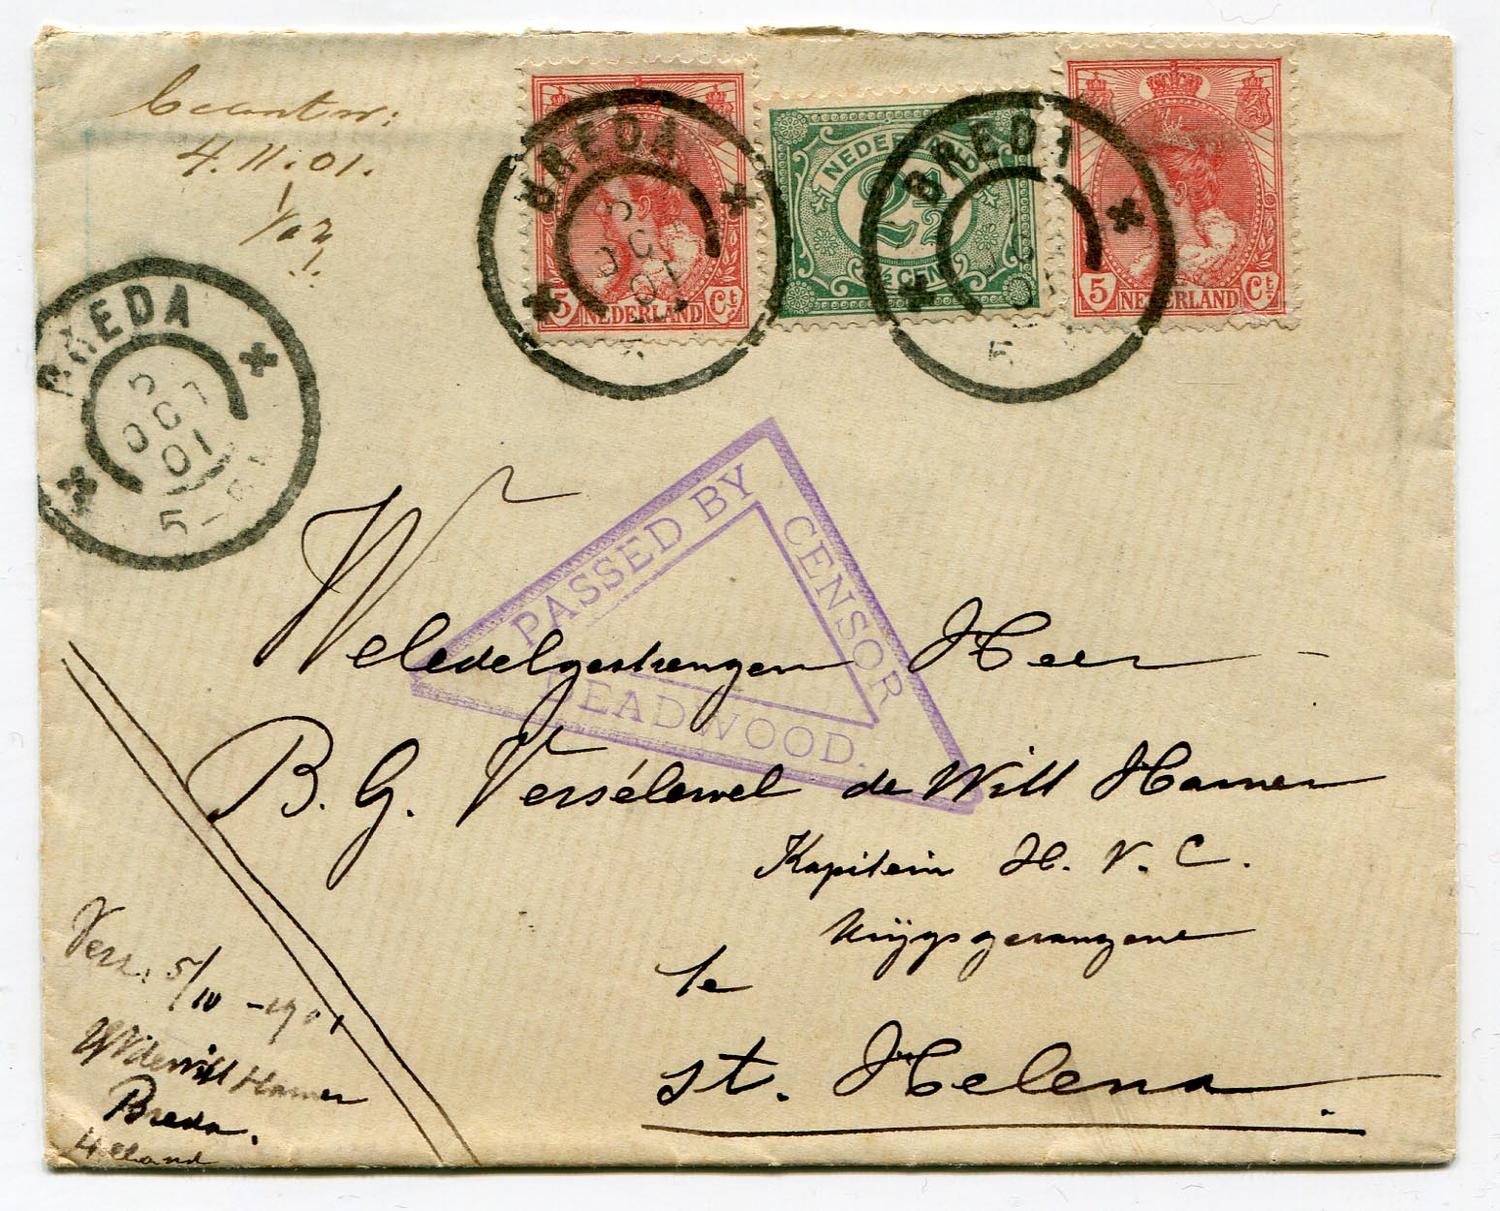 beantw:
4.11.01.
BREDA
5
OCT
01
5
NEDERLAND
5 Ct
BREDA
NEDERLAND
2½
½ CEN
5
NEDERLAND
5 Ct
BREDA
5 OCT
01
5
PASSED BY
CENSOR
DEADWOOD.
Weledelgestrengen Heer
B. G. Versélewel de Witt Hamer
Kapitein H. V. C.
Krijgsgevangene
te
St. Helena
Verz: 5/10 - 1901
V de Witt Hamer
Breda.
Holland